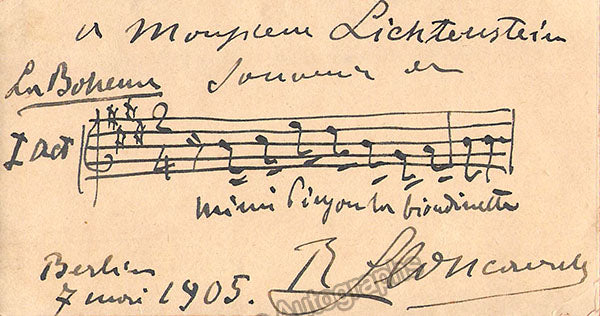 a Monsieur Lichtenstein
Souvenir de
La Boheme
I act
2
4
mimi Pinson la biondinetta
Berlin
7 mai 1905.
R Leoncavallo
Autographs